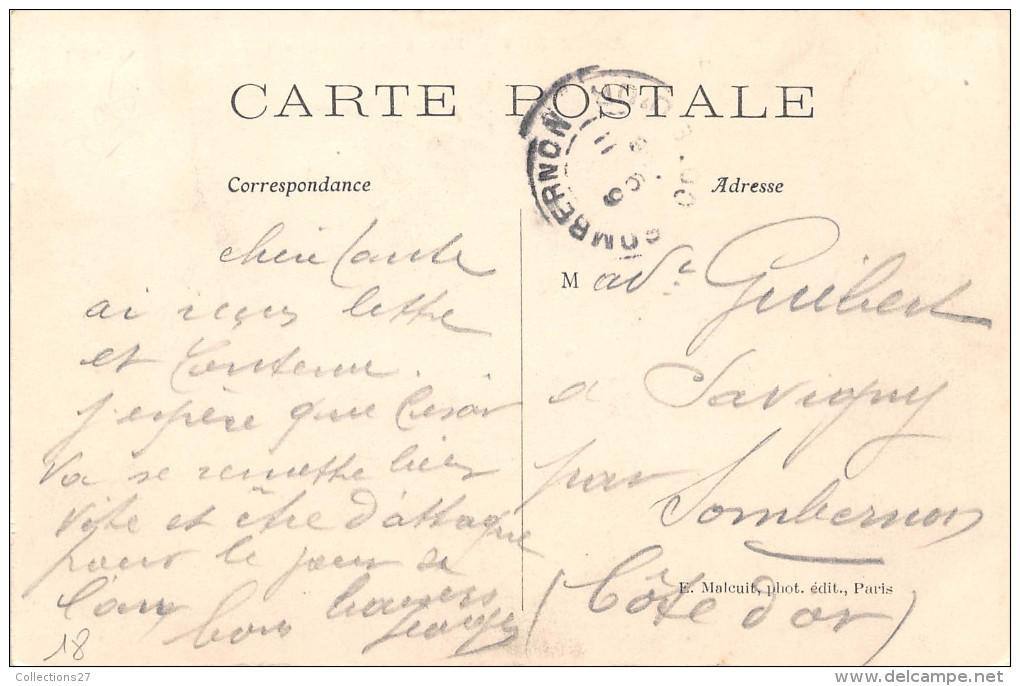 CARTE POSTALE
Correspondance
Adresse
SOMBERNON
11
chère tante
ai reçu lettre
et contenu.
j'espère que César
va se remettre bien
vite et être d'attaque
pour le jour de
l'an
bons baisers
Georges
M ad
Guibert
a Savigny
par
Sombernon
(Côte d'or)
E. Malcuit, phot. édit., Paris
18
Collections27
delcampe.net